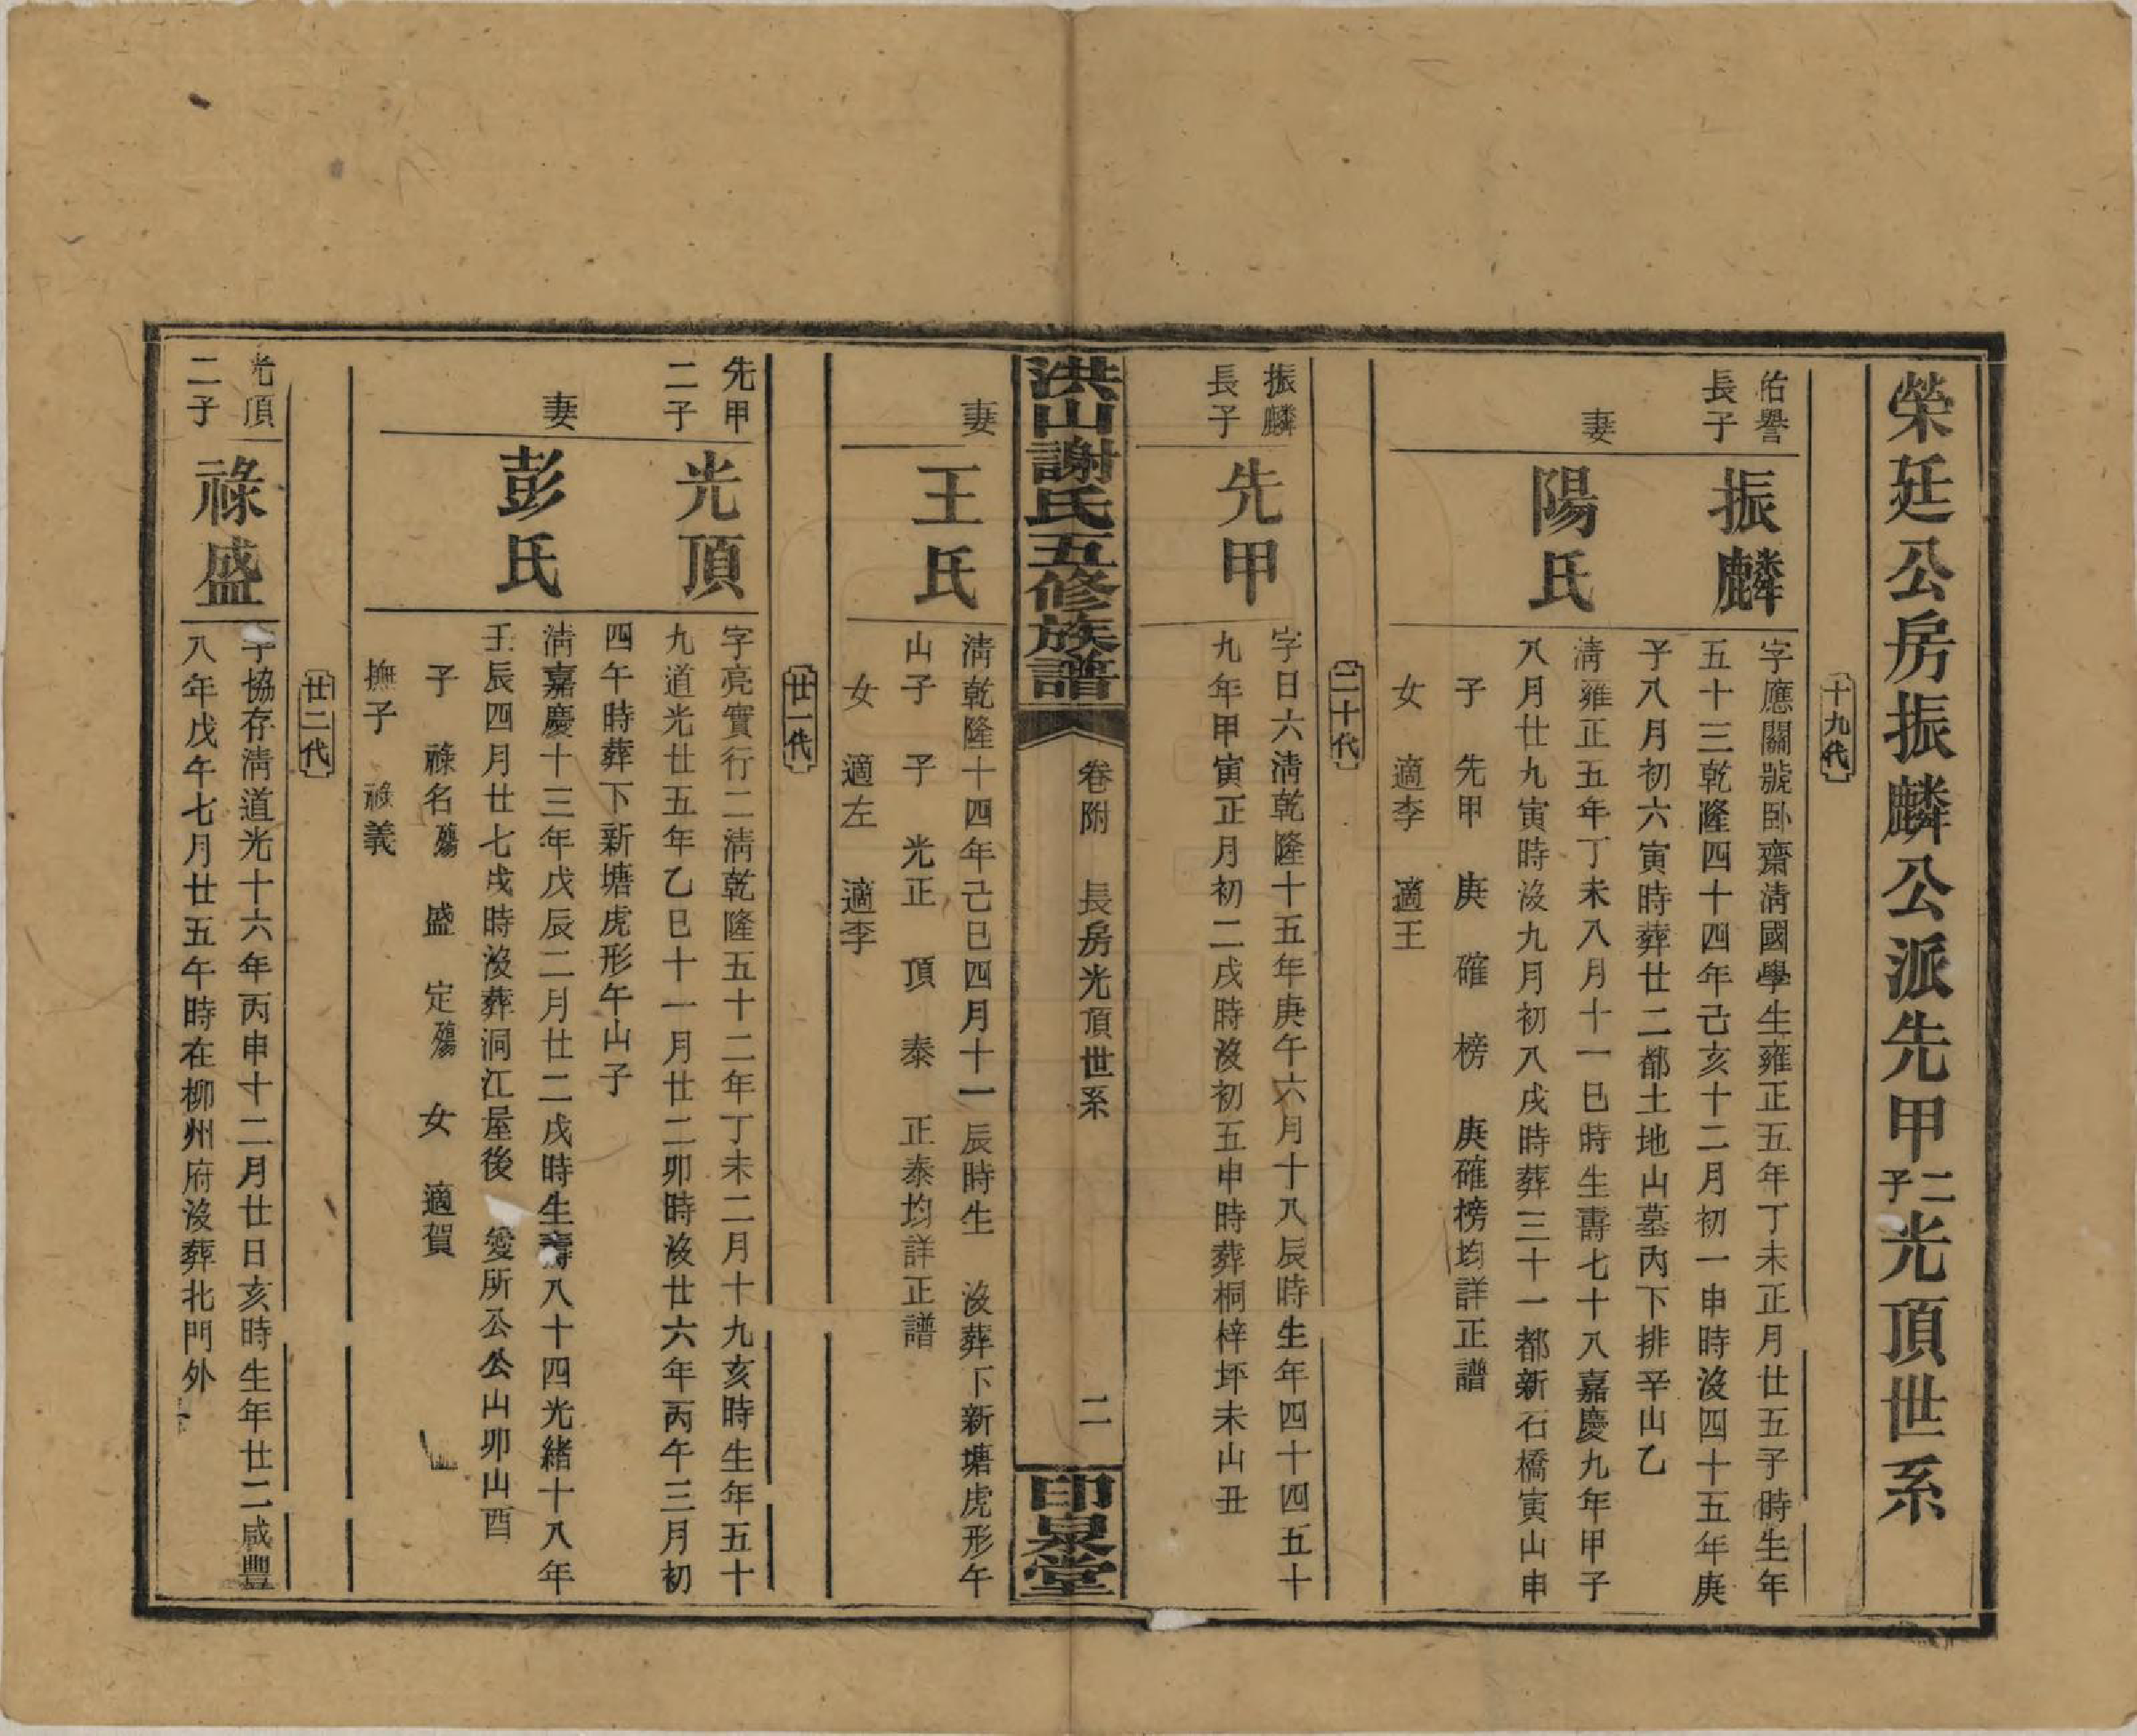 榮廷公房振麟公派先甲二子光頂世系
十九代
佑譽
長子
振麟
字應關號卧齋淸國學生雍正五年丁未正月廿五子時生年
五十三乾隆四十四年己亥十二月初一申時沒四十五年庚
子八月初六寅時葬廿二都土地山墓丙下排辛山乙
妻
陽氏
淸雍正五年丁未八月十一巳時生壽七十八嘉慶九年甲子
八月廿九寅時沒九月初八戌時葬三十一都新石橋寅山申
子 先甲 庚 確 榜 庚確榜均詳正譜
女 適李 適王
二十代
振麟
長子
先甲
字日六淸乾隆十五年庚午六月十八辰時生年四十四五十
九年甲寅正月初二戌時沒初五申時葬桐梓坪未山丑
洪山謝氏五修族譜
卷附 長房光頂世系
二
印泉堂
妻
王氏
淸乾隆十四年己巳四月十一辰時生 沒葬下新塘虎形午
山子 子 光正 頂 泰 正泰均詳正譜
女 適左 適李
廿一代
先甲
二子
光頂
字亮實行二淸乾隆五十二年丁未二月十九亥時生年五十
九道光廿五年乙巳十一月廿二卯時沒廿六年丙午三月初
四午時葬下新塘虎形午山子
妻
彭氏
淸嘉慶十三年戊辰二月廿二戌時生壽八十四光緒十八年
壬辰四月廿七戌時沒葬洞江屋後 爰所公公山卯山酉
子 祿名殤 盛 定殤 女 適賀
撫子 祿義
廿二代
光頂
二子
祿盛
字協存淸道光十六年丙申十二月廿日亥時生年廿二咸豐
八年戊午七月廿五午時在柳州府沒葬北門外